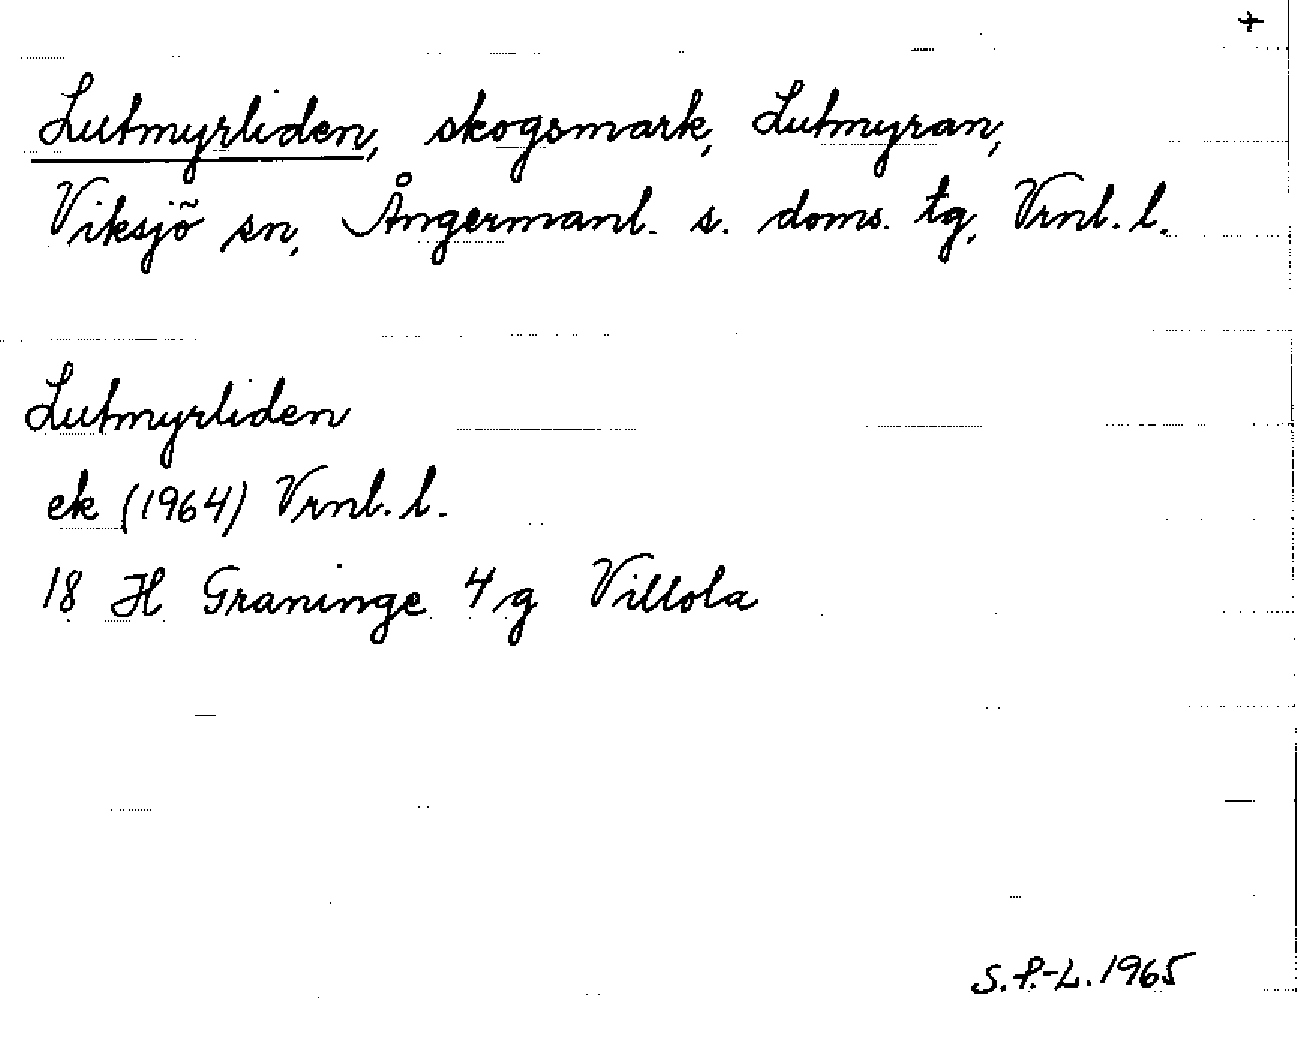 +
Lutmyrliden, skogsmark, Lutmyran,
Viksjö sn, Ångermanl. s. doms. tg, Vrnl. l.
Lutmyrliden
ek (1964) Vrnl. l.
18 H Graninge 4 g Villola
S. P.-L. 1965